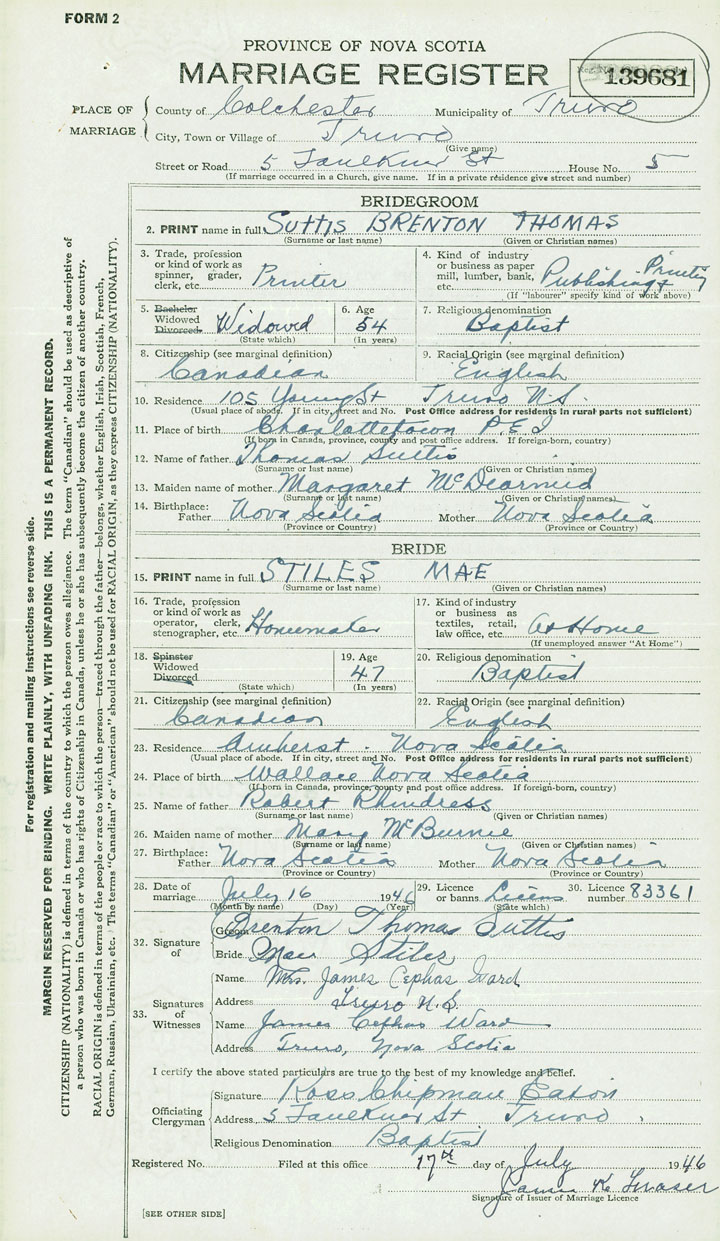 FORM 2
PROVINCE OF NOVA SCOTIA
MARRIAGE REGISTER
139681
PLACE OF MARRIAGE
County of Colchester Municipality of Truro
City, Town or Village of Truro
(Give name)
Street or Road 5 Faulkner St House No. 5
(If marriage occurred in a Church, give name. If in a private residence give street and number)
BRIDEGROOM
2. PRINT name in full SUTTIS BRENTON THOMAS
(Surname or last name) (Given or Christian names)
3. Trade, profession or kind of work as spinner, grader, clerk, etc. Printer
4. Kind of industry or business as paper mill, lumber, bank, etc. Publishing & Printing
(If "labourer" specify kind of work above)
5. Bachelor Widowed Divorced Widowed
(State which)
6. Age 54
(In years)
7. Religious denomination
Baptist
8. Citizenship (see marginal definition)
Canadian
9. Racial Origin (see marginal definition)
English
10. Residence 105 Young St Truro N.S.
(Usual place of abode. If in city, street and No. Post Office address for residents in rural parts not sufficient)
11. Place of birth Charlottetown P.E.I
(If born in Canada, province, county and post office address. If foreign-born, country)
12. Name of father Thomas Suttis
(Surname or last name) (Given or Christian names)
13. Maiden name of mother Margaret McDearmid
(Surname or last name) (Given or Christian names)
14. Birthplace: Father Nova Scotia Mother Nova Scotia
(Province or Country) (Province or Country)
BRIDE
15. PRINT name in full STILES MAE
(Surname or last name) (Given or Christian names)
16. Trade, profession or kind of work as operator, clerk, stenographer, etc. Homemaker
17. Kind of industry or business as textiles, retail, law office, etc. At Home
(If unemployed answer "At Home")
18. Spinster Widowed Divorced
(State which)
19. Age 47
(In years)
20. Religious denomination
Baptist
21. Citizenship (see marginal definition)
Canadian
22. Racial Origin (see marginal definition)
English
23. Residence Amherst - Nova Scotia
(Usual place of abode. If in city, street and No. Post Office address for residents in rural parts not sufficient)
24. Place of birth Wallace Nova Scotia
(If born in Canada, province, county and post office address. If foreign-born, country)
25. Name of father Robert Rhindress
(Surname or last name) (Given or Christian names)
26. Maiden name of mother Mary McBurnie
(Surname or last name) (Given or Christian names)
27. Birthplace: Father Nova Scotia Mother Nova Scotia
(Province or Country) (Province or Country)
28. Date of marriage July 16 1946
(Month by name) (Day) (Year)
29. Licence or banns
(State which)
30. Licence number 83361
32. Signature of
Groom Brenton Thomas Suttis
Bride Mae Stiles
33. Signatures of Witnesses
Name Mrs. James Cephas Ward
Address Truro N.S.
Name James Cephas Ward
Address Truro, Nova Scotia
I certify the above stated particulars are true to the best of my knowledge and belief.
Officiating Clergyman
Signature Ross Chipman Eaton
Address 5 Faulkner St Truro
Religious Denomination Baptist
Registered No. Filed at this office 17th day of July 1946
James K Fraser
Signature of Issuer of Marriage Licence
[SEE OTHER SIDE]
For registration and mailing instructions see reverse side.
MARGIN RESERVED FOR BINDING. WRITE PLAINLY, WITH UNFADING INK. THIS IS A PERMANENT RECORD.
CITIZENSHIP (NATIONALITY) is defined in terms of the country to which the person owes allegiance. The term "Canadian" should be used as descriptive of
a person who was born in Canada or who has rights of Citizenship in Canada, unless he or she has subsequently become the citizen of another country.
RACIAL ORIGIN is defined in terms of the people or race to which the person—traced through the father—belongs, whether English, Irish, Scottish, French,
German, Russian, Ukrainian, etc. The terms "Canadian" or "American" should not be used for RACIAL ORIGIN, as they express CITIZENSHIP (NATIONALITY).